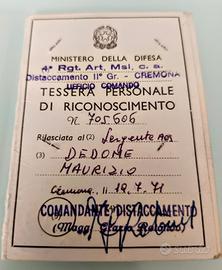 MINISTERO DELLA DIFESA
4º Rgt. Art. Msl. c. a.
Distaccamento IIº Gr. - CREMONA
UFFICIO COMANDO
TESSERA PERSONALE
DI RICONOSCIMENTO
N 705606
Rilasciata al (2) Sergente
(3) DEDOME
MAURIZIO
Cremona, li 19.7.71
COMANDANTE DISTACCAMENTO
(Magg.
subito